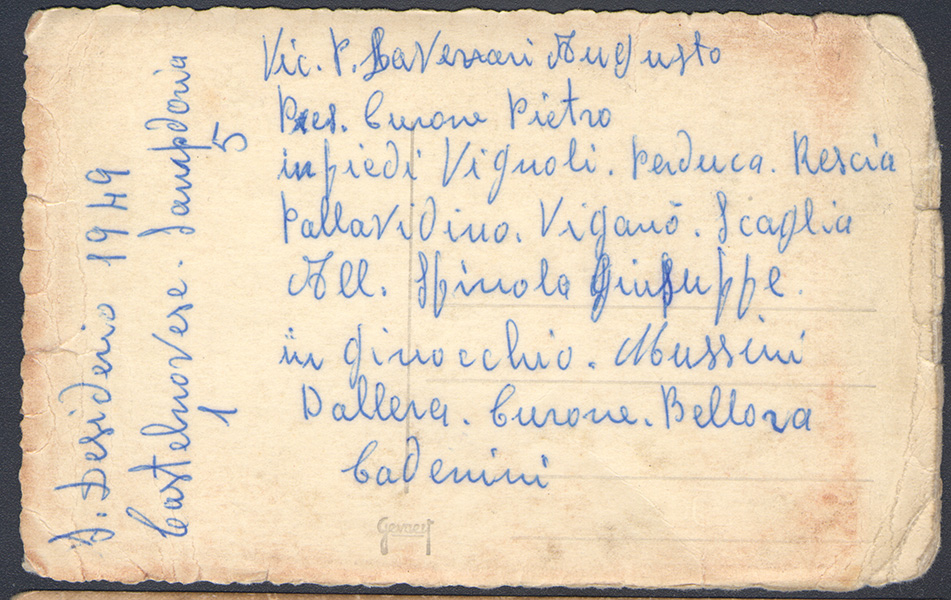 Vic. P. Laverrari Augusto
Pres. Curone Pietro
in piedi Vignoli. Perduca. Rescia
Pallavidino. Viganò. Scaglia
All. Spinola Giuseppe.
in ginocchio. Mussini
Dallera. Curone. Bellora
Cadenini
S. Desiderio 1949
Castelnovese. Sampdoria
1 5
Gevaert